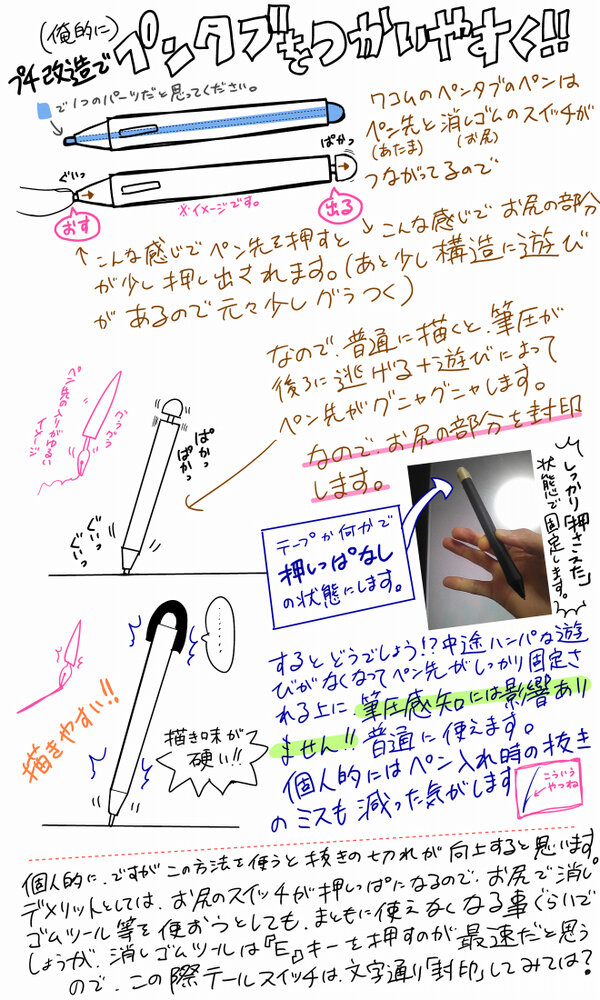 (俺的に)
プチ改造でペンタブをつかいやすく!!
で1つのパーツだと思ってください。
ワコムのペンタブのペンは
ペン先と消しゴムのスイッチが
(あたま) (お尻)
つながってるので
ぐいっ
ぱかっ
おす
※イメージです。
出る
↑こんな感じでペン先を押すと
↓こんな感じでお尻の部分
が少し押し出されます。(あと少し構造に遊び
があるので元々少しグラつく)
なので、普通に描くと、筆圧が
後ろに逃げる+遊びによって
ペン先がグニャグニャします。
なので、お尻の部分を封印
します。
ペン先の入りがゆるい
イメージ
グラグラ
ぱかっ
ぱかっ
ぐいっ
ぐいっ
テープか何かで
押しっぱなし
の状態にします。
しっかり「押さえた」
状態で固定します。
するとどうでしょう!?中途ハンパな遊
びがなくなってペン先がしっかり固定さ
れる上に筆圧感知には影響あり
ません!!普通に使えます。
個人的にはペン入れ時の抜き
のミスも減った気がします
こういう
やつね
描きやすい!!
描き味が
硬い!!
個人的に、ですがこの方法を使うと抜きの切れが向上すると思います。
デメリットとしては、お尻のスイッチが押しっぱになるので、お尻で消し
ゴムツール等を使おうとしても、まともに使えなくなる事ぐらいで
しょうが、消しゴムツールは『E』キーを押すのが最速だと思う
ので、この際テールスイッチは、文字通り「封印」してみては?